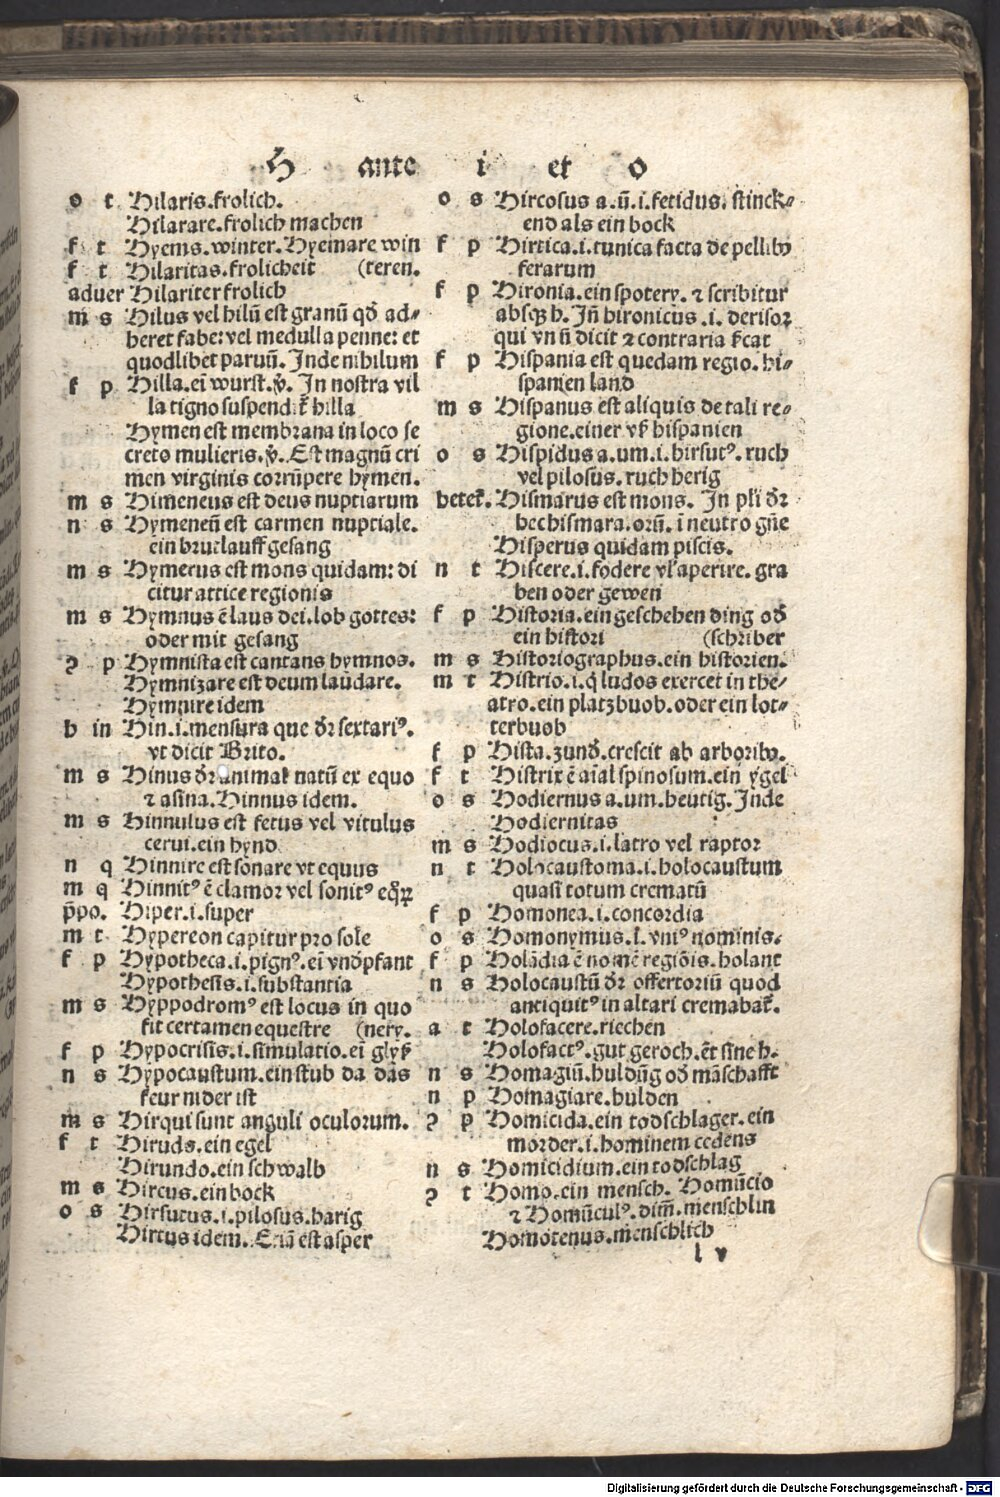 H ante i et o
o t Hilaris.frolich.
Hilarare.frolich machen
f t Hyems.winter.Hyemare win
f t Hilaritas.frolicheit (teren.
aduer Hilariter frolich
m s Hilus vel hilū est granū qđ ad⸗
heret fabe: vel medulla penne: et
quodlibet paruū. Inde nihilum
f p Hilla.eī wurst.ꝟ. In nostra vil
la tigno suspendit̄ hilla
Hymen est membrana in loco se
creto mulieris.ꝟ. Est magnū cri
men virginis corrūpere hymen.
m s Himeneus est deus nuptiarum
n s Hymeneū est carmen nuptiale.
ein brutlauff gesang
m s Hymetus est mons quidam: di
citur attice regionis
m s Hymnus ē laus dei.lob gottes:
oder mit gesang
ꝯ p Hymnista est cantans hymnos.
Hymnizare est deum laudare.
Hymnire idem
h in Hin.i.mensura que dr̄ sextariꝰ.
vt dicit Brito.
m s Hinus dr̄ animal natū ex equo
⁊ asina.Hinnus idem.
m s Hinnulus est fetus vel vitulus
cerui.ein hynd
n q Hinnire est sonare vt equus
m q Hinnitꝰ ē clamor vel sonitꝰ eq̄ꝝ
p̄po. Hiper.i.super
m t Hypereon capitur pro sole
f p Hypotheca.i.pignꝰ.eī vndpfant
Hypothesis.i.substantia
m s Hyppodromꝰ est locus in quo
fit certamen equestre (nery.
f p Hypocrisis.i.simulatio.eī glyß
n s Hypocaustum.ein stub da das
feur nider ist
m s Hirqui sunt anguli oculorum.
f t Hirudo.ein egel
Hirundo.ein schwalb
m s Hircus.ein bock
o s Hirsutus.i.pilosus.harig
Hirtus idem. Etiā est asper
o s Hircosus a.ū.i.fetidus. stinck⸗
end als ein bock
f p Hirtica.i.tunica facta de pellibꝰ
ferarum
f p Hironia.ein spotery. ⁊ scribitur
absqꝫ h. Jn̄ hironicus .i. derisor
qui vn̄ dicit ⁊ contraria
f p Hispania est quedam regio. hi⸗
spanien land
m s Hispanus est aliquis de tali re⸗
gione.einer vß hispanien
o s Hispidus a.um.i.hirsutꝰ. ruch
vel pilosus. ruch herig
heteꝶ. Hismarus est mons. In pli dr̄
hechismara.orū. i neutro gn̄e
Hisperus quidam piscis.
n t Hiscere.i.fodere vl' aperire. gra
ben oder gewen
f p Historia.ein geschehen ding oð
ein histori (schriber
m s Historiographus.ein historien.
m t Histrio.i.q̄ ludos exercet in the⸗
atro.ein platzbuob.oder ein lot⸗
terbuob
f p Hista.zund.crescit ab arboribꝰ.
f t Histrix ē aīal spinosum.ein ygel
o s Hodiernus a.um.heutig. Inde
Hodiernitas
m s Hodiocus.i.latro vel raptor
n t Holocaustoma.i.holocaustum
quasi totum crematū
f p Homonea.i.concordia
o s Homonymus.i.vniꝰ nominis.
f p Holādia ē nomē regiōis.holant
n s Holocaustū dr̄ offertoriū quod
antiquitꝰ in altari cremabat̄.
a t Holofacere.riechen
Holofactꝰ.gut geroch.ēt sine h.
n s Homagiū.huldūg oð māschafft
n p Homagiare.hulden
ꝯ p Homicida.ein todschlager.ein
morder.i.hominem cedens
n s Homicidium.ein todschlag
ꝯ t Homo.ein mensch. Homūcio
⁊ Homūculꝰ.dim̄.menschlin
Homotenus.menschlich
l v
Digitalisierung gefördert durch die Deutsche Forschungsgemeinschaft - DFG